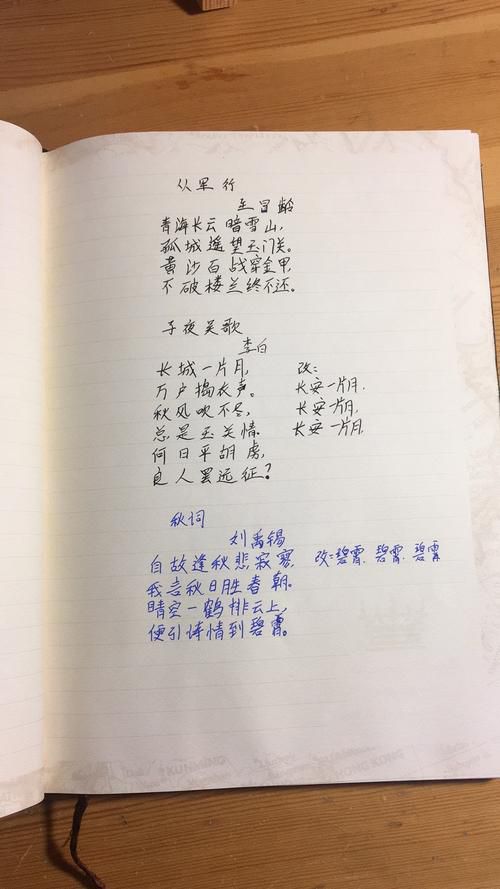 从军行
王昌龄
青海长云暗雪山,
孤城遥望玉门关。
黄沙百战穿金甲,
不破楼兰终不还。
子夜吴歌
李白
长城一片月, 改:
万户捣衣声。 长安一片月.
秋风吹不尽, 长安一片月,
总是玉关情. 长安一片月,
何日平胡虏,
良人罢远征?
秋词
刘禹锡
自故逢秋悲寂寥, 改:碧霄. 碧霄. 碧霄
我言秋日胜春朝。
晴空一鹤排云上,
便引诗情到碧霄。
KUNMING
HONG KONG